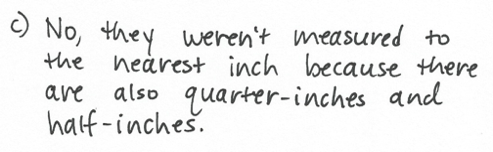 c) No, they weren't measured to
the nearest inch because there
are also quarter-inches and
half-inches.